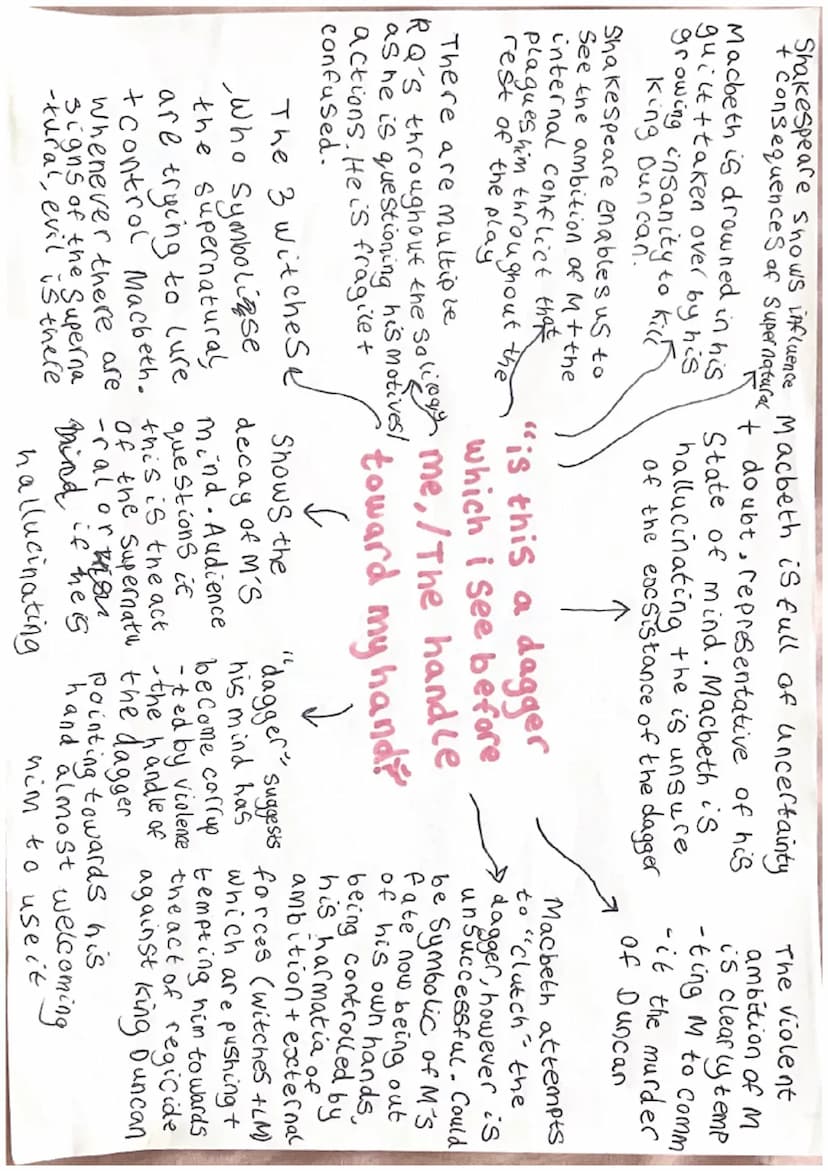 Shakespeare shows influence
+ consequences of supernatural
Macbeth is drowned in his
guilt + taken over by his
growing insanity to kill
King Duncan.
Shakespeare enables us to
see the ambition of M + the
internal conflict that
plagues him throughout the
rest of the play
There are multiple
RQ's throughout the soliloqy
as he is questioning his motives/
actions. He is fragile +
confused.
The 3 witches
, who symbolise
the supernatural,
are trying to lure
+ control Macbeth.
Whenever there are
signs of the superna
-tural, evil is there
Macbeth is full of uncertainty
+ doubt, representative of his
state of mind. Macbeth is
hallucinating + he is unsure
of the excsistance of the dagger
"is this a dagger
which i see before
me,/The handle
toward my hand?"
Shows the
decay of M's
mind. Audience
questions if
this is the act
of the supernatu
-ral or
mind if he is
hallucinating
"dagger" suggests
his mind has
become corrup
-ted by violence
-the handle of
the dagger
pointing towards his
hand almost welcoming
him to use it
The violent
ambition of M
is clearly temp
-ting M to comm
-it the murder
of Duncan
Macbeth attempts
to "clutch" the
dagger, however is
unsuccessful. Could
be symbolic of M's
fate now being out
of his own hands,
being controlled by
his harmatia of
ambition + external
forces (witches + LM)
which are pushing +
tempting him towards
the act of regicide
against King Duncan